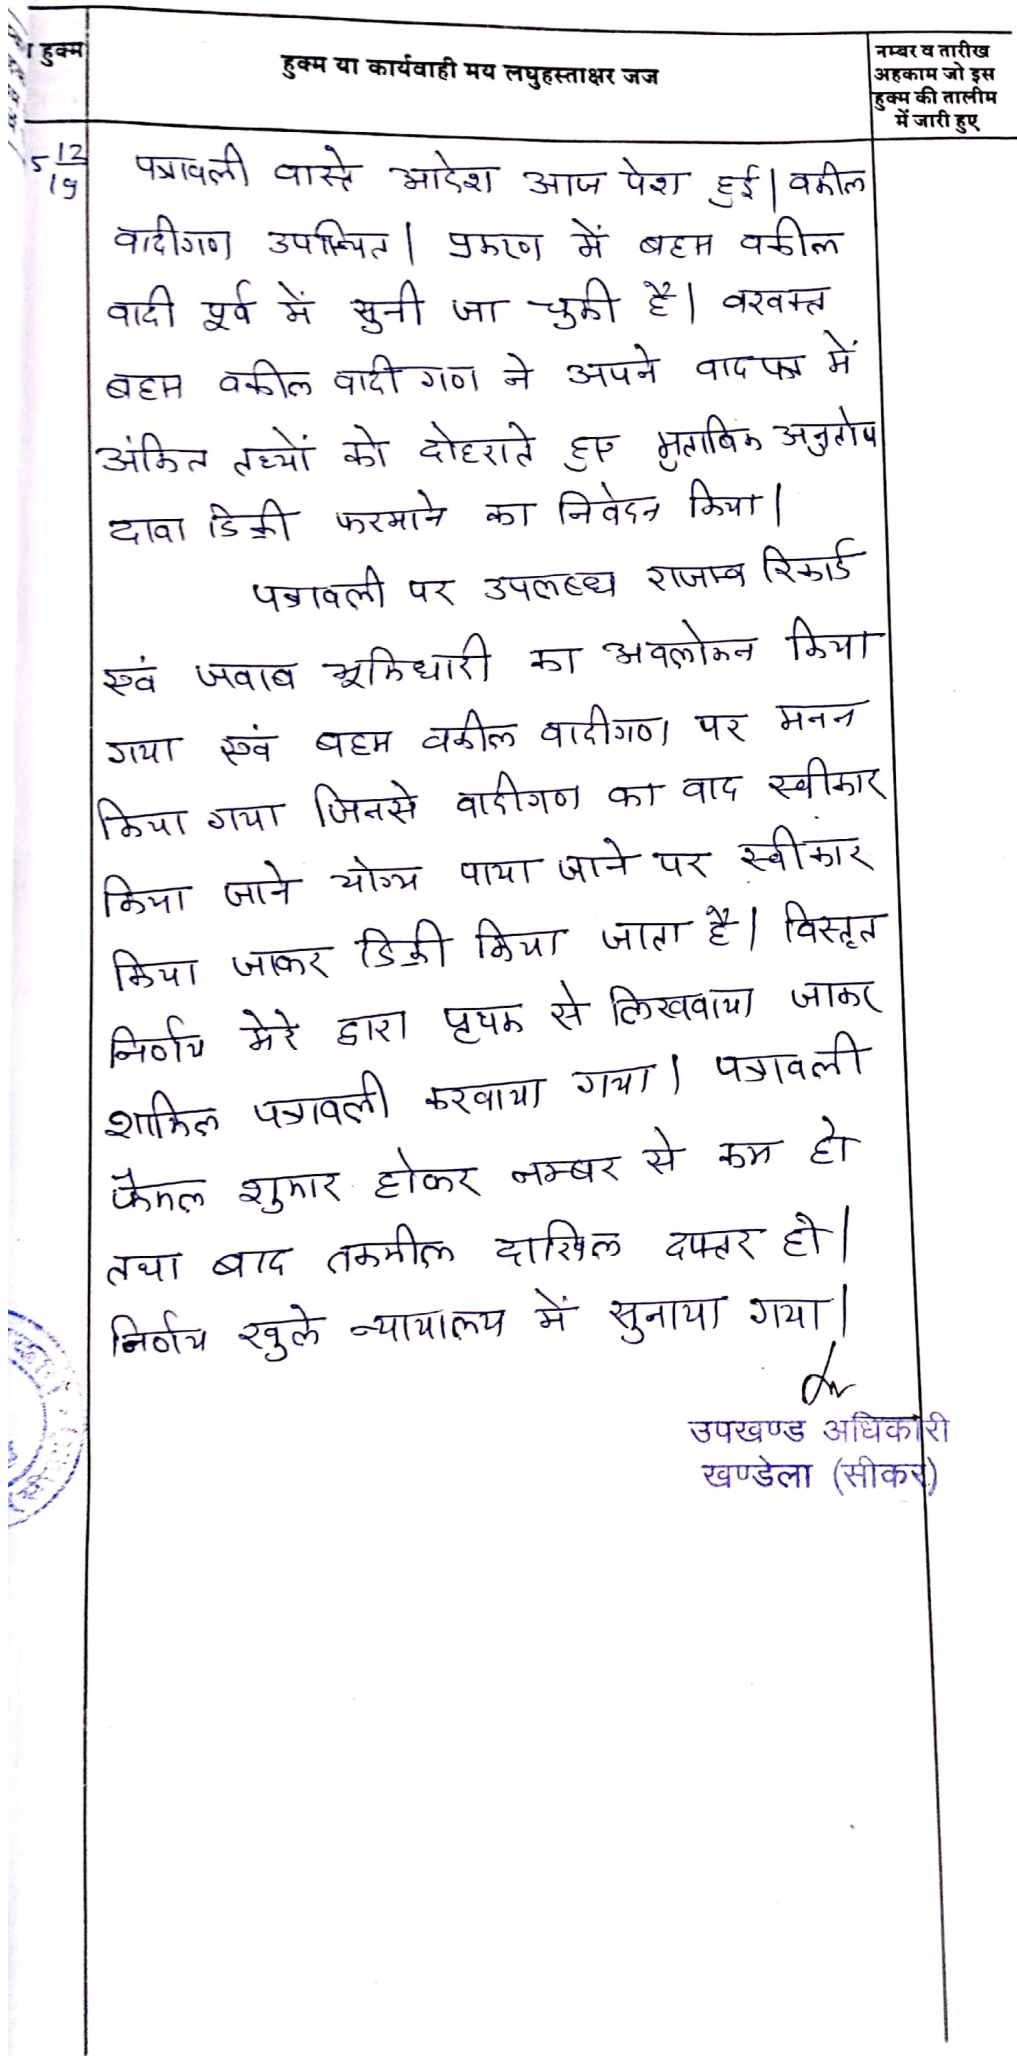 हुक्म
हुक्म या कार्यवाही मय लघुहस्ताक्षर जज
नम्बर व तारीख
अहकाम जो इस
हुक्म की तालीम
में जारी हुए
5 12/19
पत्रावली वास्ते आदेश आज पेश हुई। वकील
वादीगण उपस्थित। प्रकरण में बहस वकील
वादी पूर्व में सुनी जा चुकी है। वरवक्त
बहस वकील वादीगण ने अपने वादपत्र में
अंकित तथ्यों को दोहराते हुए मुताबिक अनुतोष
दावा डिक्री फरमाने का निवेदन किया।
पत्रावली पर उपलब्ध राजस्व रिकार्ड
एवं जवाब भूमिधारी का अवलोकन किया
गया एवं बहस वकील वादीगण पर मनन
किया गया जिनसे वादीगण का वाद स्वीकार
किया जाने योग्य पाया जाने पर स्वीकार
किया जाकर डिक्री किया जाता है। विस्तृत
निर्णय मेरे द्वारा पृथक से लिखवाया जाकर
शामिल पत्रावली करवाया गया। पत्रावली
फैसल शुमार होकर नम्बर से कम हो
तथा बाद तकमील दाखिल दफ्तर हो।
निर्णय खुले न्यायालय में सुनाया गया।
उपखण्ड अधिकारी
खण्डेला (सीकर)